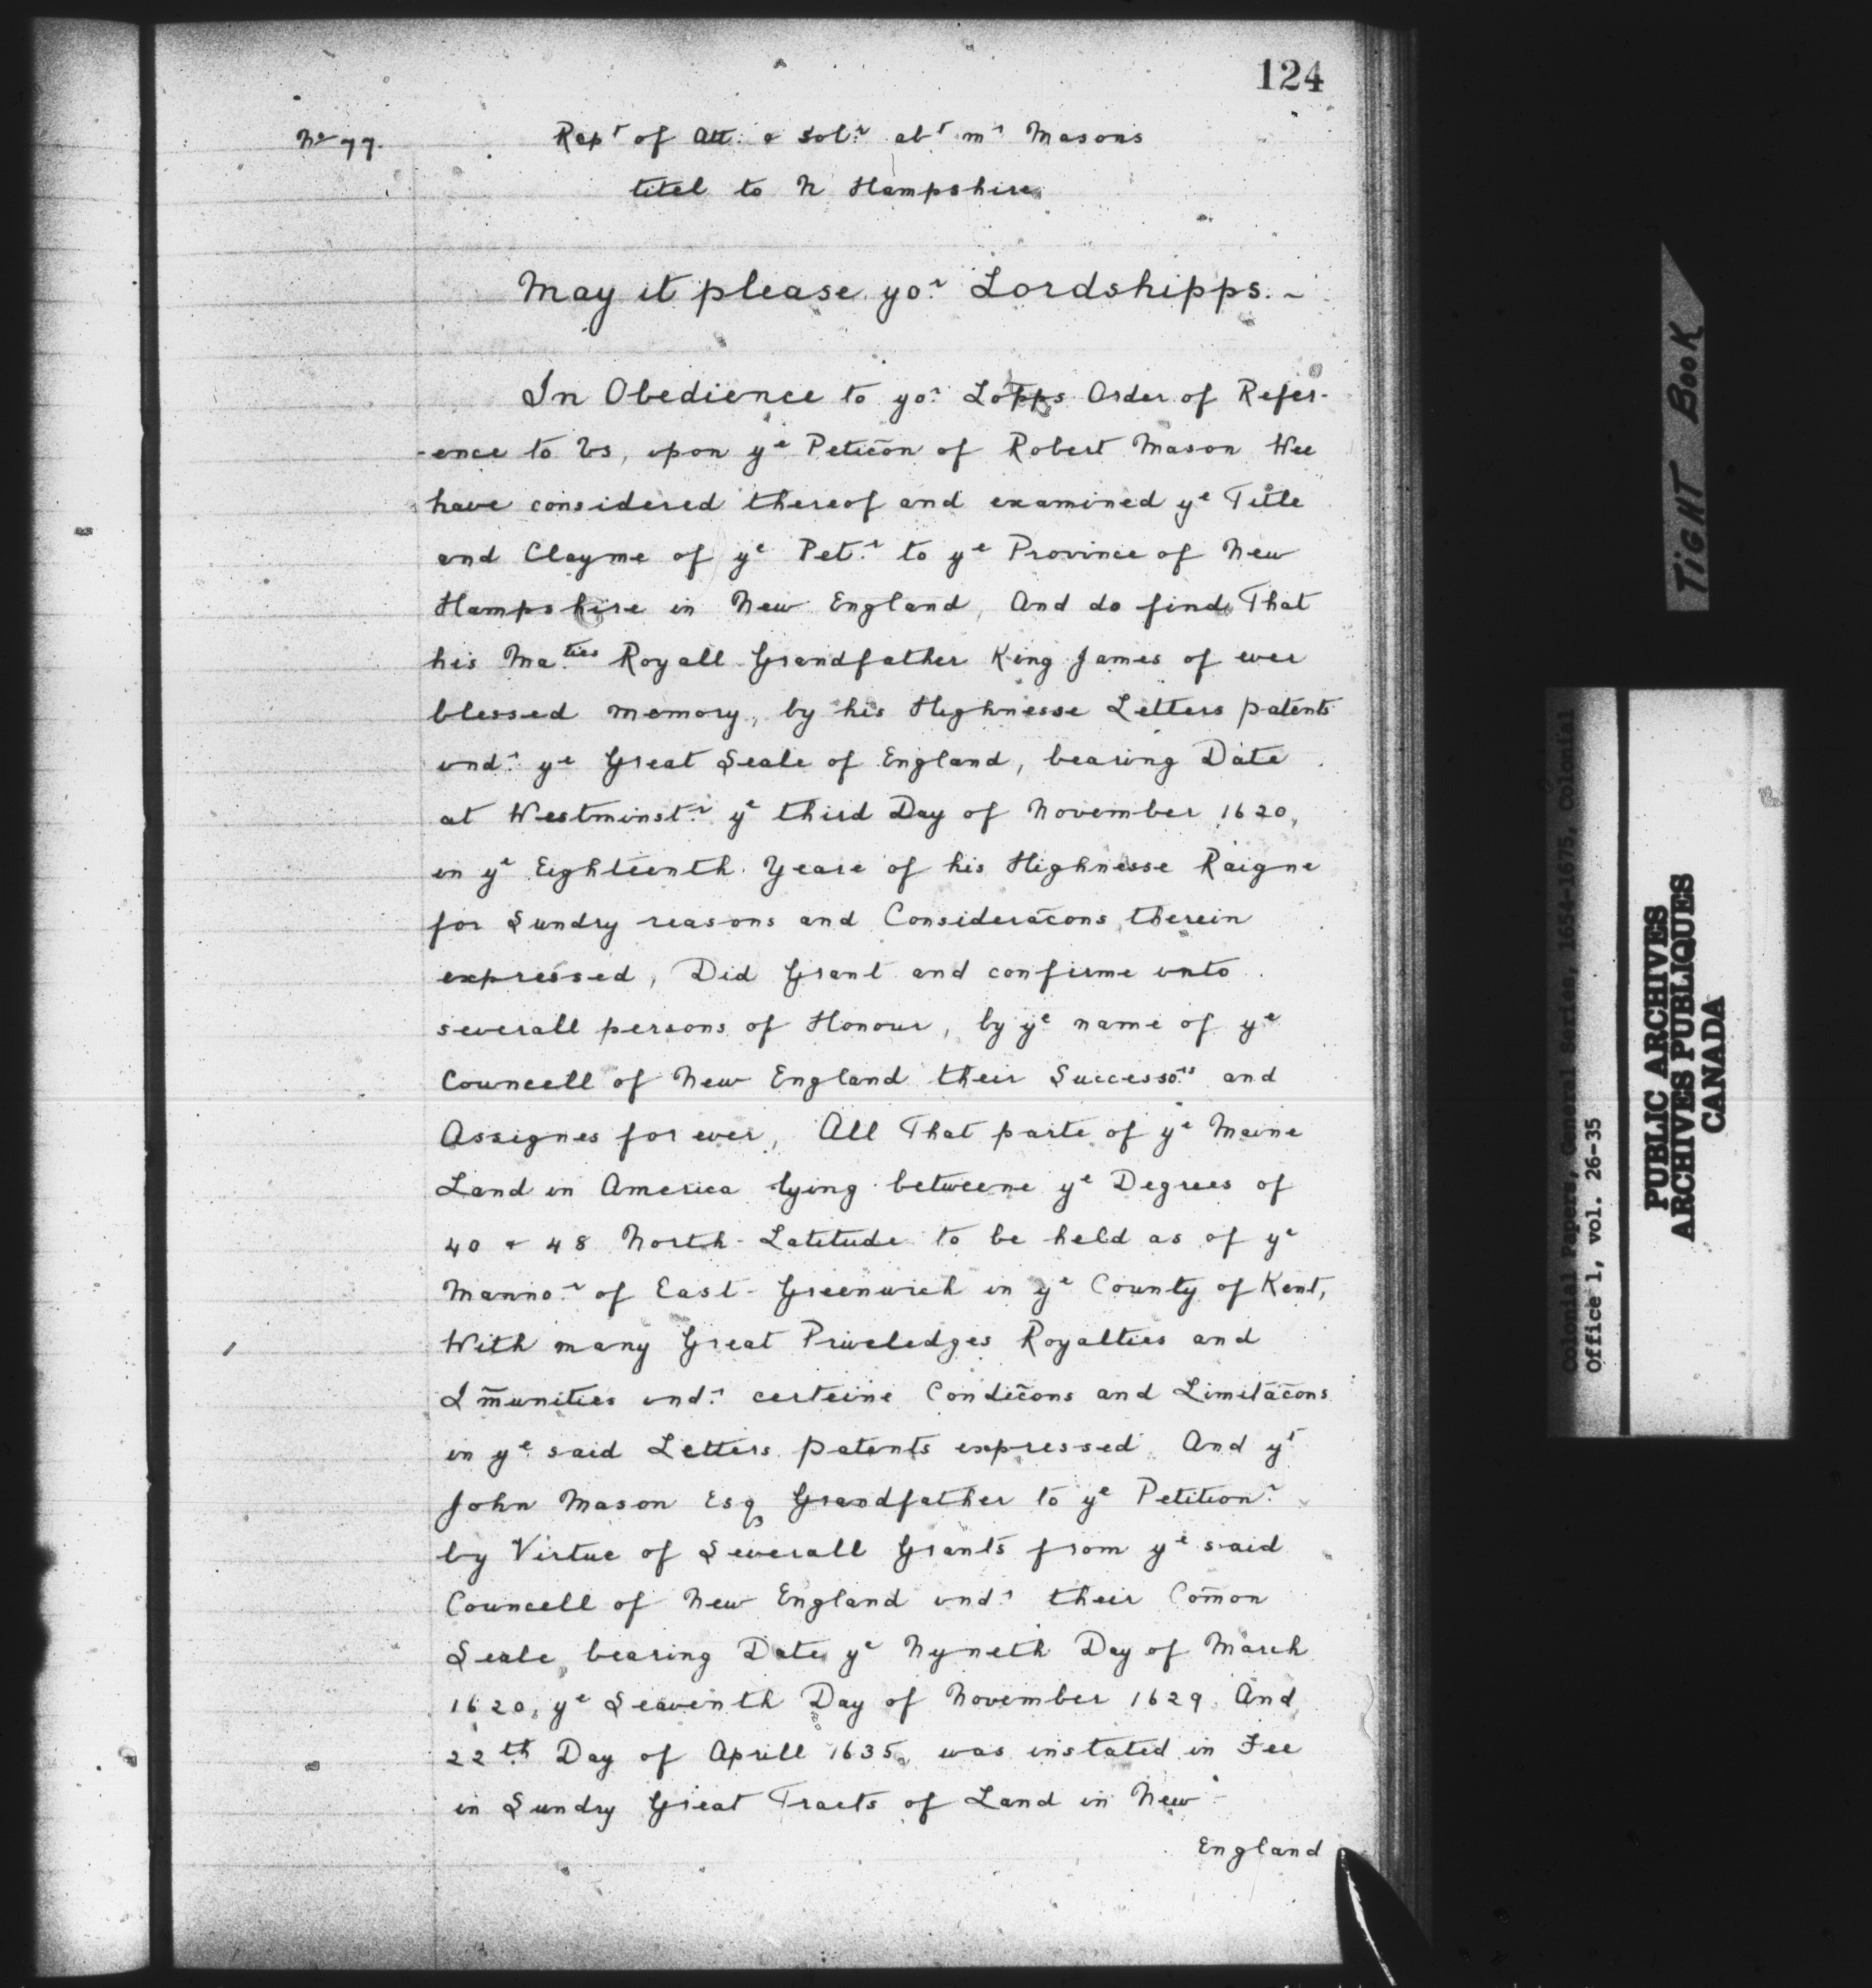 124
No 77.
Rept of Att. & Solr abt mr Masons
titel to N Hampshire
May it please yor Lordshipps. ~
In Obedience to yor Lopps Order of Refer-
-ence to Vs, vpon ye Peticōn of Robert Mason Wee
have considered thereof and examined ye Title
and Clayme of ye Petr to ye Province of New
Hampshire in New England, And do find That
his Maties Royall Grandfather King James of ever
blessed memory, by his Highnesse Letters patents
vndr ye Great Seale of England, bearing Date
at Westminstr ye third Day of November 1620,
in ye Eighteenth Yeare of his Highnesse Raigne
for Sundry reasons and Consideracōns therein
expressed, Did Grant and confirme vnto
severall persons of Honour, by ye name of ye
Councell of New England their Successors and
Assignes for ever, All That parte of ye Maine
Land in America lying betweene ye Degrees of
40 & 48 North-Latitude to be held as of ye
Mannor of East-Greenwich in ye County of Kent,
With many Great Priveledges Royalties and
Im̄unities vndr certeine Condicōns and Limitacōns
in ye said Letters patents expressed And yt
John Mason Esqꝫ Grandfather to ye Petitionr
by Virtue of Severall Grants from ye said
Councell of New England vndr their Com̄on
Seale, bearing Date ye Nyneth Day of March
1620, ye Seaventh Day of November 1629. And
22th Day of Aprill 1635, was instated in Fee
in Sundry Great Tracts of Land in New-
England
TIGHT BOOK
Colonial Papers, General Series, 1654-1675, Colonial
Office 1, vol. 26-35
PUBLIC ARCHIVES
ARCHIVES PUBLIQUES
CANADA